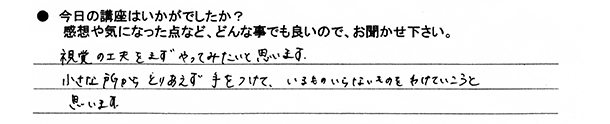 ● 今日の講座はいかがでしたか？
感想や気になった点など、どんな事でも良いので、お聞かせ下さい。
視覚の工夫をまずやってみたいと思います.
小さな所からとりあえず手をつけて、いるものいらないものをわけていこうと
思います